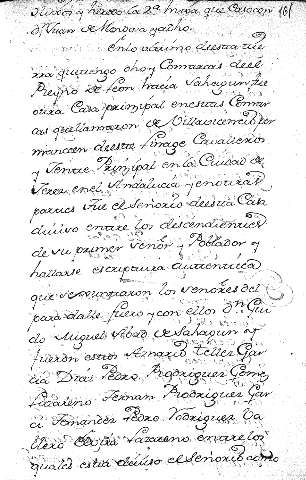 dieron y hizose la 2ª hermana que caso con 161
D. Juan de Mendoza y a dho.
En lo ultimo de esta tie
rra que tengo oho y Comarcas de el
Reyno de Leon hacia Sahagun fue
otra Casa principal en estas Comar
cas que llamaron de Villavicencio per
manecen de este linage Cavalleros
y Jente Principal en la Ciudad de
Jerez en el Andalucia y en otras
partes Fue el Señorio de esta Casa
diviso entre los descendientes
de su primer Señor y Poblador y
hallase escriptura autentica
que se juntaron los señores del
para dalle fuero y con ellos Dn. Gui
do Miguel Abad de Sahagun q
fueron estos Arnario Tellez Gar
cia Diaz Pedro Rodriguez Gomez
Lazareno Fernan Rodriguez Gar
ci Fernandez Pedro Rodriguez Ca
llero Lazareno entre los
quales estava diviso el Señorio como